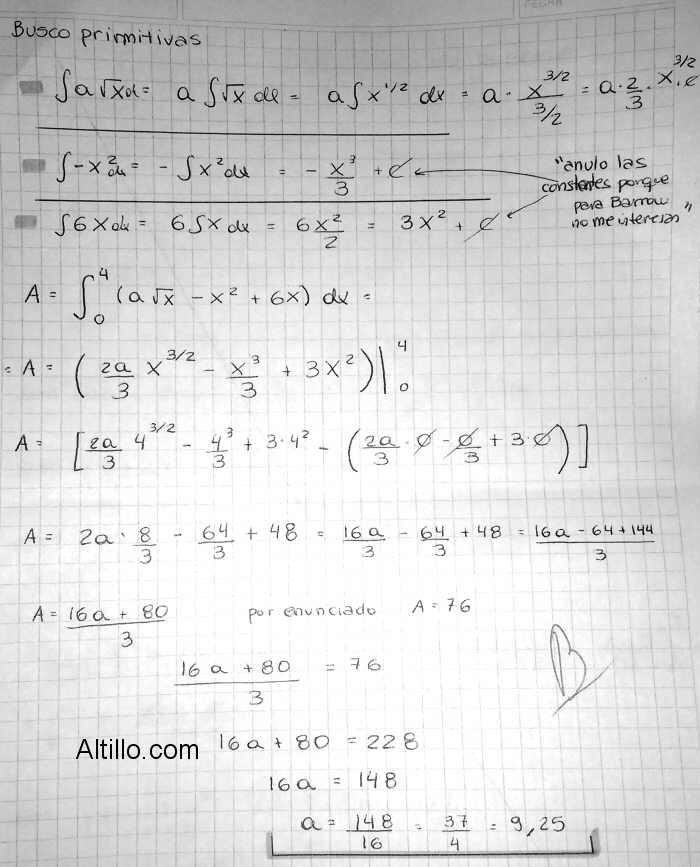 FECHA
Busco primitivas
∫a√x dx = a ∫√x dx = a ∫ x^1/2 dx = a · x^3/2 / 3/2 = a · 2/3 · x^3/2 . c
∫-x² dx = - ∫x² dx = - x³/3 + c
∫6x dx = 6∫x dx = 6x²/2 = 3x² + c
"anulo las
constantes porque
para Barrow
no me interesan"
A = ∫₀⁴ (a√x - x² + 6x) dx =
= A = (2a/3 x^3/2 - x³/3 + 3x²)|₀⁴
A = [2a/3 4^3/2 - 4³/3 + 3·4² - (2a/3 · 0 - 0/3 + 3·0)]
A = 2a · 8/3 - 64/3 + 48 = 16a/3 - 64/3 + 48 = 16a - 64 + 144 / 3
A = 16a + 80 / 3 por enunciado A = 76
16a + 80 / 3 = 76
B
Altillo.com
16a + 80 = 228
16a = 148
a = 148/16 = 37/4 = 9,25